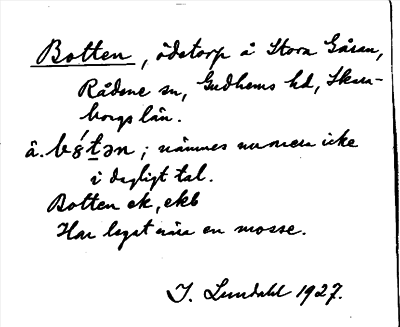 Botten, ödetorp å Stora Gåsan,
Rådene sn, Gudhems hd, Skara-
borgs län.
å. bǿt̲ən; nämnes numera icke
i dagligt tal.
Botten ek, ekb
Har legat nära en mosse.
I. Lundahl 1927.